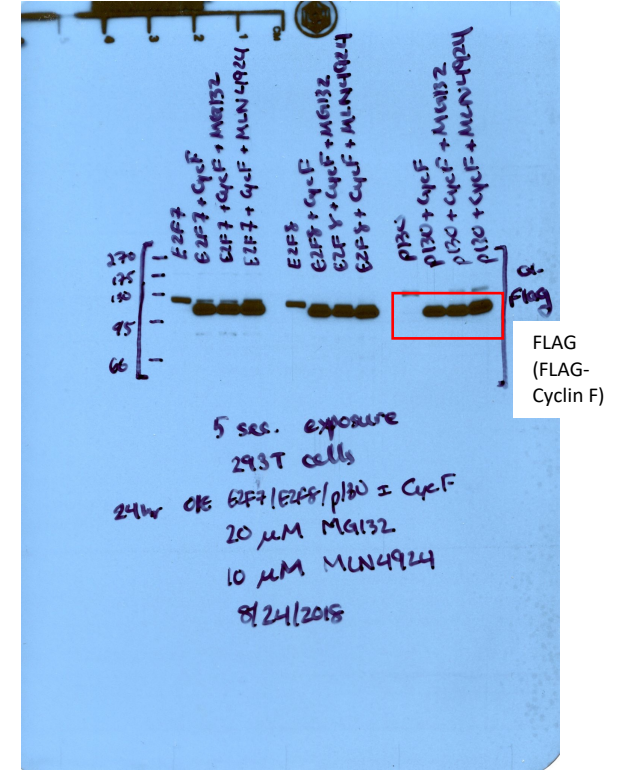 4 3 2 1 CM
E2F7
E2F7 + CycF
E2F7 + CycF + MG132
E2F7 + CycF + MLN4924
E2F8
E2F8 + CycF
E2F8 + CycF + MG132
E2F8 + CycF + MLN4924
p130
p130 + CycF
p130 + CycF + MG132
p130 + CycF + MLN4924
270
175
130
95
66
α.
Flag
FLAG
(FLAG-
Cyclin F)
5 sec. exposure
293T cells
24hr O/E E2F7/E2F8/p130 ± CycF
20 μM MG132
10 μM MLN4924
8/24/2018